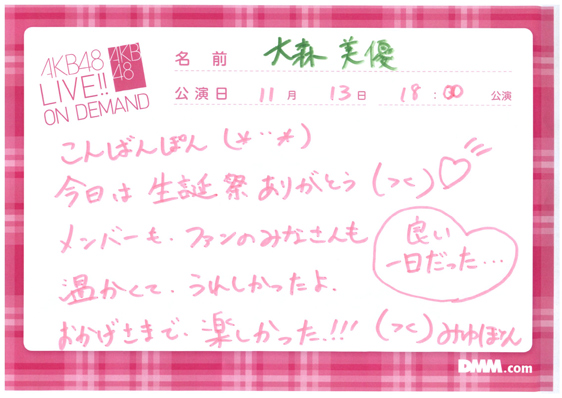 AKB48
LIVE!!
ON DEMAND
AKB
48
名前 大森美優
公演日 11月 13日 18:00 公演
こんばんぽん (*¨*)
今日は 生誕祭ありがとう (つく)♡
メンバーも、ファンのみなさんも
温かくて、うれしかったよ、
おかげさまで、楽しかった!!! (つく) みゆぽん
良い
一日だった…
DMM.com